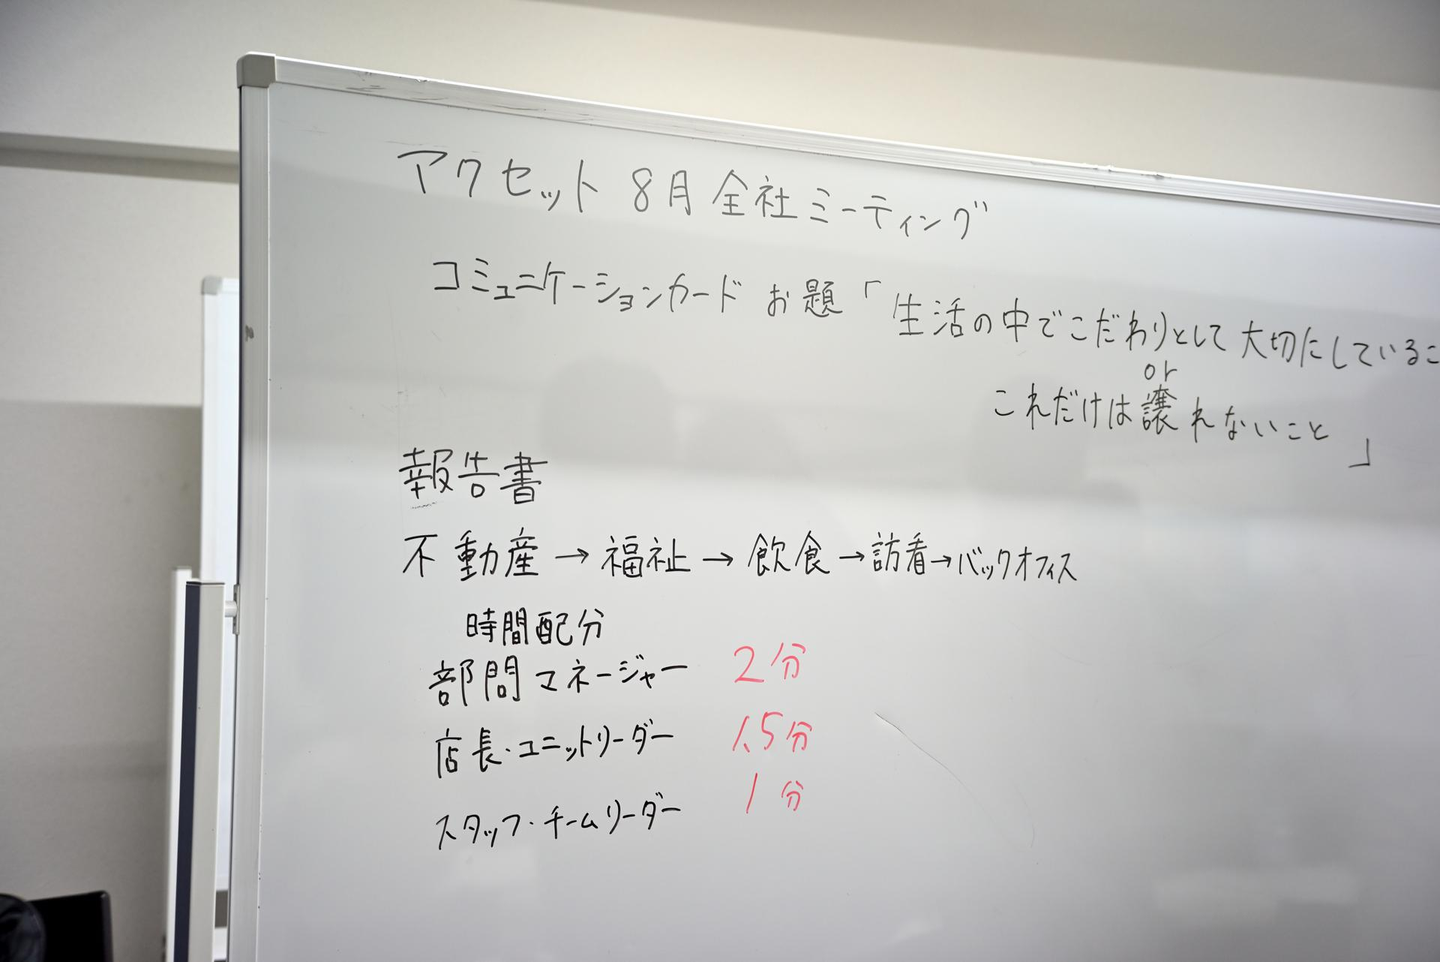 アクセット 8月全社ミーティング
コミュニケーションカード お題「生活の中でこだわりとして大切にしているこ
or
これだけは譲れないこと」
報告書
不動産→福祉→飲食→訪看→バックオフィス
時間配分
部門マネージャー 2分
店長・ユニットリーダー 1.5分
スタッフ・チームリーダー 1分